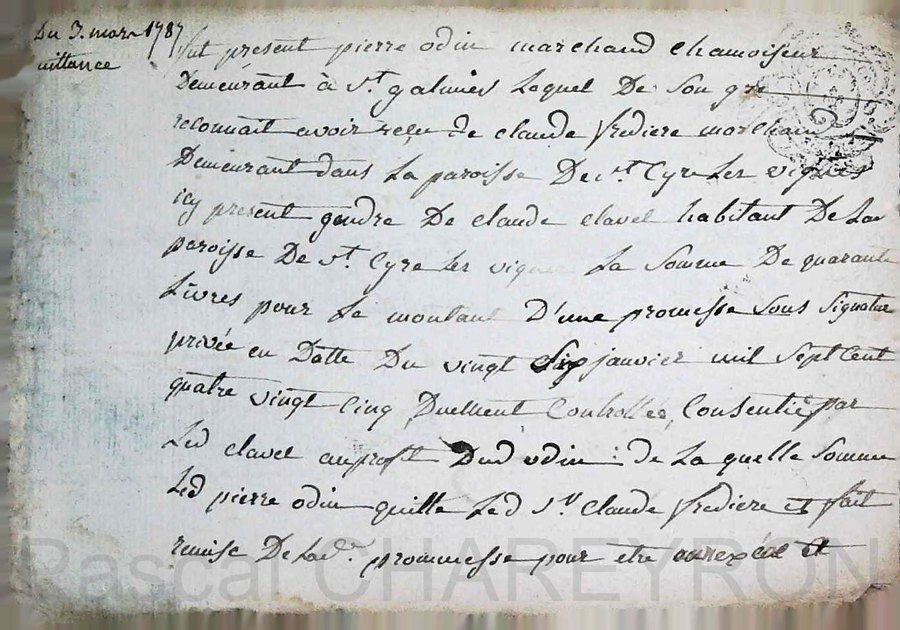 Du 3. mars 1787
uittance
fut present pierre odin marchand chamoiseur
Demeurant à St. galmier lequel De Son gre
reconnait avoir reçu de claude frediere marchand
Demeurant dans La paroisse De St. Cyre Les vignes
icy present gendre De claude clavel habitant De La
paroisse De St. Cyre Les vignes La Somme De quarante
Livres pour Le montant D'une promesse Sous Signature
privée en Datte Du vingt Six janvier mil Sept Cent
quatre vingt Cinq Duement Controllée, Consentie par
Led clavel auprofit Dud odin : de La quelle Somme
Led pierre odin quitte Led Sr. Claude frediere et fait
remise De Lade. prommesse pour etre et
Pascal CHAREYRON